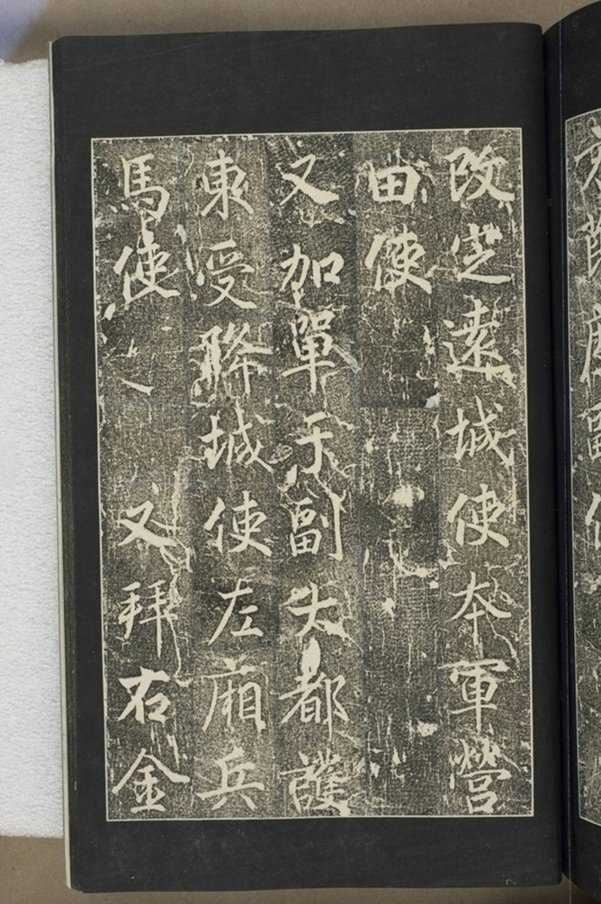 改定遠城使本軍營
田使
又加單于副大都護
東受降城使左廂兵
馬使 又拜右金